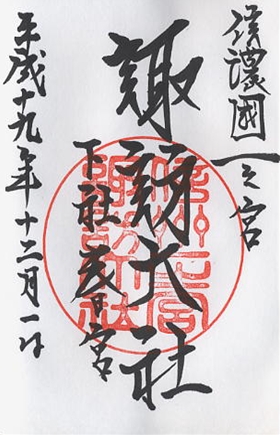 信濃國一之宮
諏訪大社
下社春宮
平成十九年十二月一日